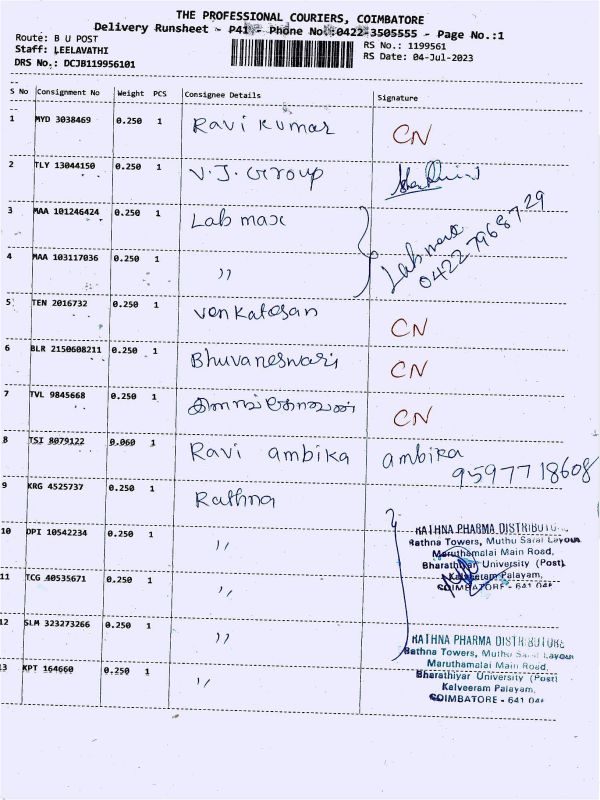 THE PROFESSIONAL COURIERS, COIMBATORE
Delivery Runsheet - P41 - Phone No.:0422-3505555 - Page No.:1
Route: B U POST
Staff: LEELAVATHI
RS No.: 1199561
DRS No.: DCJB119956101
RS Date: 04-Jul-2023
S No Consignment No Weight PCS Consignee Details Signature
1 MYD 3038469 0.250 1 Ravi Kumar CN
2 TLY 13044150 0.250 1 V.J. Group
3 MAA 101246424 0.250 1 Lab max
Lab max
0422 7968729
4 MAA 103117036 0.250 1 ,,
5 TEN 2016732 0.250 1 Venkatesan CN
6 BLR 2150608211 0.250 1 Bhuvaneswari CN
7 TVL 9845668 0.250 1 CN
8 TSI 8079122 0.060 1 Ravi ambika ambika
9597718608
9 KRG 4525737 0.250 1 Rathna
10 DPI 10542234 0.250 1 ,,
11 TCG 40535671 0.250 1 ,,
12 SLM 323273266 0.250 1 ,,
13 KPT 164660 0.250 1 ,,
RATHNA PHARMA DISTRIBUTORS
Rathna Towers, Muthu Sarai Layout
Maruthamalai Main Road,
Bharathiyar University (Post)
Kalveeram Palayam,
COIMBATORE - 641 046
RATHNA PHARMA DISTRIBUTORS
Rathna Towers, Muthu Layout
Maruthamalai Main Road,
Bharathiyar University (Post)
Kalveeram Palayam,
COIMBATORE - 641 046